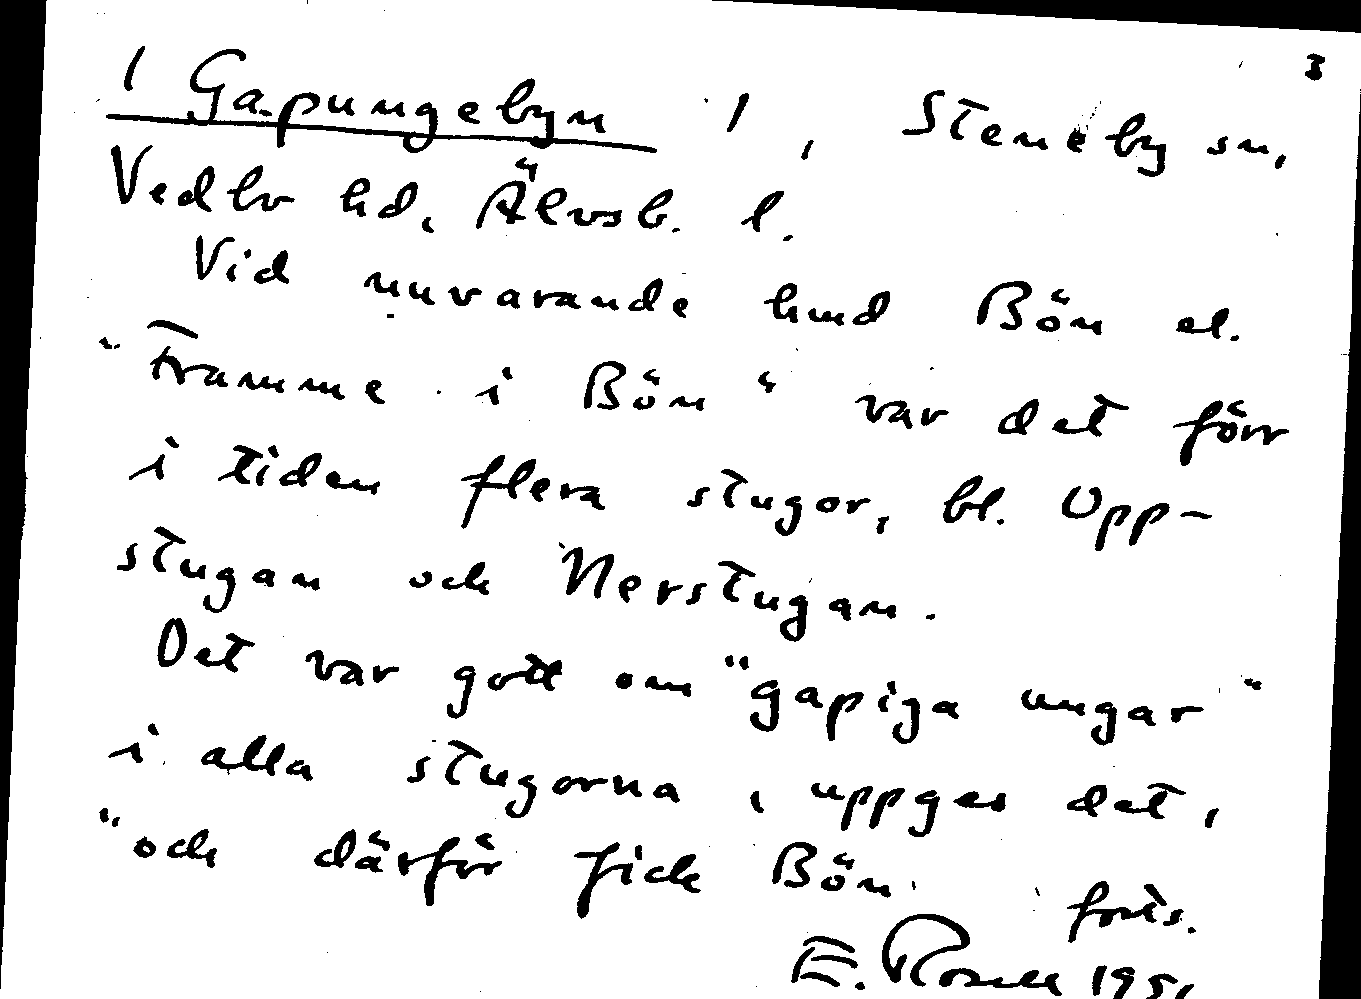 3
( Gapungebyn ) , Steneby sn,
Vedbo hd, Älvsb. l.
Vid nuvarande hmd Bön el.
"Framme i Bön" var det förr
i tiden flera stugor, bl. Upp-
stugan och Nerstugan.
Det var gott om "gapiga ungar"
i alla stugorna, uppges det,
"och därför fick Bön forts.
E. Rosell 195